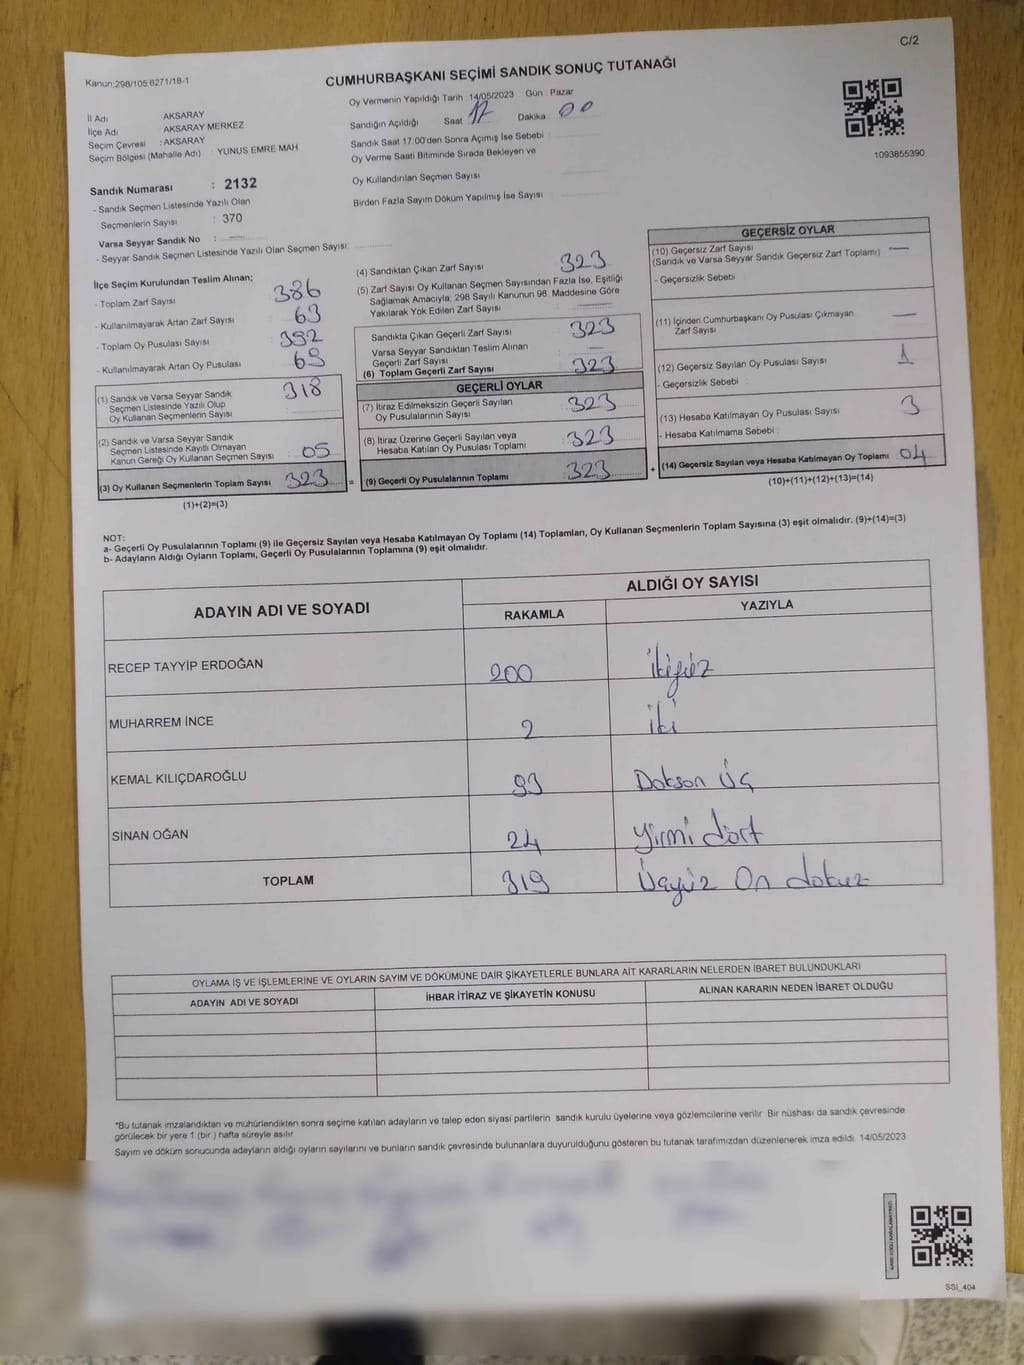 C/2
Kanun:298/105.6271/18-1
CUMHURBAŞKANI SEÇİMİ SANDIK SONUÇ TUTANAĞI
İl Adı AKSARAY
İlçe Adı AKSARAY MERKEZ
Seçim Çevresi : AKSARAY
Seçim Bölgesi (Mahalle Adı) YUNUS EMRE MAH
Oy Vermenin Yapıldığı Tarih 14/05/2023 Gün : Pazar
Sandığın Açıldığı Saat 17 Dakika : 00
Sandık Saat 17:00'den Sonra Açımış İse Sebebi
Oy Verme Saati Bitiminde Sırada Bekleyen ve
Oy Kullandırılan Seçmen Sayısı
Birden Fazla Sayım Döküm Yapılmış İse Sayısı
1093855390
Sandık Numarası : 2132
- Sandık Seçmen Listesinde Yazılı Olan
Seçmenlerin Sayısı : 370
Varsa Seyyar Sandık No : —
- Seyyar Sandık Seçmen Listesinde Yazılı Olan Seçmen Sayısı:
İlçe Seçim Kurulundan Teslim Alınan;
- Toplam Zarf Sayısı 386
- Kullanılmayarak Artan Zarf Sayısı 63
- Toplam Oy Pusulası Sayısı 392
- Kullanılmayarak Artan Oy Pusulası 69
(1) Sandık ve Varsa Seyyar Sandık
Seçmen Listesinde Yazılı Olup
Oy Kullanan Seçmenlerin Sayısı 318
(2) Sandık ve Varsa Seyyar Sandık
Seçmen Listesinde Kayıtlı Olmayan
Kanun Gereği Oy Kullanan Seçmen Sayısı 05
(3) Oy Kullanan Seçmenlerin Toplam Sayısı 323 =
(1)+(2)=(3)
(4) Sandıktan Çıkan Zarf Sayısı 323
(5) Zarf Sayısı Oy Kullanan Seçmen Sayısından Fazla İse, Eşitliği
Sağlamak Amacıyla; 298 Sayılı Kanunun 98. Maddesine Göre
Yakılarak Yok Edilen Zarf Sayısı —
Sandıkta Çıkan Geçerli Zarf Sayısı 323
Varsa Seyyar Sandıktan Teslim Alınan
Geçerli Zarf Sayısı —
(6) Toplam Geçerli Zarf Sayısı 323
GEÇERLİ OYLAR
(7) İtiraz Edilmeksizin Geçerli Sayılan
Oy Pusulalarının Sayısı 323
(8) İtiraz Üzerine Geçerli Sayılan veya
Hesaba Katılan Oy Pusulası Toplamı 323
(9) Geçerli Oy Pusulalarının Toplamı 323 +
GEÇERSİZ OYLAR
(10) Geçersiz Zarf Sayısı —
(Sandık ve Varsa Seyyar Sandık Geçersiz Zarf Toplamı)
- Geçersizlik Sebebi
(11) İçinden Cumhurbaşkanı Oy Pusulası Çıkmayan —
Zarf Sayısı
(12) Geçersiz Sayılan Oy Pusulası Sayısı 1
- Geçersizlik Sebebi :
(13) Hesaba Katılmayan Oy Pusulası Sayısı 3
- Hesaba Katılmama Sebebi :
(14) Geçersiz Sayılan veya Hesaba Katılmayan Oy Toplamı 04
(10)+(11)+(12)+(13)=(14)
NOT:
a- Geçerli Oy Pusulalarının Toplamı (9) ile Geçersiz Sayılan veya Hesaba Katılmayan Oy Toplamı (14) Toplamları, Oy Kullanan Seçmenlerin Toplam Sayısına (3) eşit olmalıdır. (9)+(14)=(3)
b- Adayların Aldığı Oyların Toplamı, Geçerli Oy Pusulalarının Toplamına (9) eşit olmalıdır.
ADAYIN ADI VE SOYADI ALDIĞI OY SAYISI
RAKAMLA YAZIYLA
RECEP TAYYİP ERDOĞAN 200 ikiyüz
MUHARREM İNCE 2 iki
KEMAL KILIÇDAROĞLU 93 Doksan Üç
SİNAN OĞAN 24 yirmi dört
TOPLAM 319 Üçyüz On dokuz
OYLAMA İŞ VE İŞLEMLERİNE VE OYLARIN SAYIM VE DÖKÜMÜNE DAİR ŞİKAYETLERLE BUNLARA AİT KARARLARIN NELERDEN İBARET BULUNDUKLARI
ADAYIN ADI VE SOYADI İHBAR İTİRAZ VE ŞİKAYETİN KONUSU ALINAN KARARIN NEDEN İBARET OLDUĞU
*Bu tutanak imzalandıktan ve mühürlendikten sonra seçime katılan adayların ve talep eden siyasi partilerin sandık kurulu üyelerine veya gözlemcilerine verilir. Bir nüshası da sandık çevresinde
görülecek bir yere 1 (bir ) hafta süreyle asılır.
Sayım ve döküm sonucunda adayların aldığı oyların sayılarını ve bunların sandık çevresinde bulunanlara duyurulduğunu gösteren bu tutanak tarafımızdan düzenlenerek imza edildi. 14/05/2023
SSİ_404